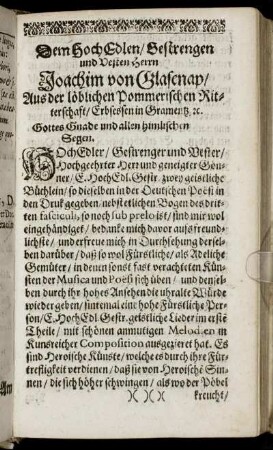 Dem Hoch Edlen/ Gestrengen
und Vesten Herrn
Joachim von Glasenap/
Aus der löblichen Pommerischen Rit-
terschaft/ Erbsessen in Gramentz, ꝛc.
Gottes Gnade und allen himlischen
Segen.
HOchEdler/ Gestrenger und Vester/
Hochgeehrter Herr und geneigter Gön-
ner/ E. HochEdl. Gestr. zwey geistliche
Büchlein/ so dieselben in der Deutschen Poësi in
den Druk gegeben/ nebst etlichen Bogen des drit-
ten fasciculi, so noch sub prelo ist/ sind mir wol
eingehändiget/ bedanke mich davor aufs freund-
lichste/ und erfreue mich in Durchsehung dersel-
ben darüber/ daß so wol Fürstliche/ als Adeliche
Gemüter/ in denen sonst fast verachteten Kün-
sten der Musica und Poësi sich üben/ und densel-
ben durch Ihr hohes Ansehen die uhralte Würde
wieder geben/ sintemal eine hohe Fürstliche Per-
son/ E. HochEdl. Gestr. geistliche Lieder im erstē
Theile/ mit schönen anmutigen Melodien in
Kunsreicher Composition ausgezieret hat. Es
sind Heroische Künste/ welche es durch ihre Für-
trefligkeit verdienen/ daß sie von Heroischē Sin-
nen/ die sich höher schwingen/ als wo der Pöbel
)( )( kreucht/